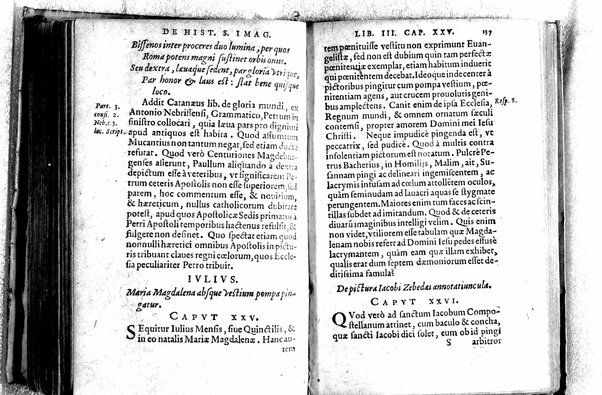 DE HIST. S. IMAG.
Bissenos inter proceres duo lumina, per quos
Roma potens magni sustinet orbis onus.
Seu dextra, lauaque sedent, par gloria vtrique,
Par honor & laus est: stat bene quisque
loco.
Addit Catanæus lib. de gloria mundi, ex
Antonio Nebrissensi, Grammatico, Petrum in
sinistro collocari, quia læua pars pro digniori
apud antiquos est habita. Quod assumtum
Mucantius non tantum negat, sed etiam docte
refutat. Quod verò Centuriones Magdeburgenses
asserunt, Paullum aliquando à dextra
depictum esse à veteribus, vt significarent Petrum
ceteris Apostolis non esse superiorem, sed
parem, hoc commentum esse, & nouitium,
& hæreticum, nullus catholicorum dubitare
poterit, apud quos Apostolicæ Sedis primatus à
Petri Apostoli temporibus hactenus refulsit, &
fulgere non desinet. Quo spectat etiam quod
nonnulli hæretici omnibus Apostolis in picturis
tribuant claues regni cœlorum, quas Ecclesia
peculiariter Petro tribuit.
Part. 3.
consi. 2.
Neh. c. 3.
loc. Script.
IVLIVS.
Maria Magdalena absque vestium pompa pingatur.
CAPVT XXV.
SEquitur Iulius Mensis, siue Quinctilis, &
in eo natalis Mariæ Magdalenæ. Hanc autem
LIB. III. CAP. XXV. 137
tem pœnituisse vestitu non exprimunt Euangelistæ,
sed non est dubium quin tam perfectæ
pœnitentiæ exemplar, etiam habitum induerit
qui pœnitentem decebat. Ideoque indecenter à
pictoribus pingitur cum pompa vestium, pœnitentiam
agens, aut crucem prouolutis genibus
amplectens. Canit enim de ipsa Ecclesia,
Regnum mundi, & omnem ornatum sæculi
contemsi, propter amorem Domini mei Iesu
Christi. Neque impudicè pingenda est, vt
peccatrix, sed pudicè. Quod à multis contra
insolentiam pictorum est notatum. Pulcrè Petrus
Bacherius, in Homiliis, Malim, ait, Susannam
pingi ac delineari ingemiscentem, ac
lacrymis infusam ad cœlum attollétem oculos,
quàm seminudam ad lauacri aquas se stygmate
perungentem. Maiores enim tum faces ac scintillas
subdet ad imitandum. Quod & de ceteris
diuarū imaginibus intelligi velim. Quis enim
non videt, vtiliorem esse tabulam quæ Magdalenam
nobis refert ad Domini Iesu pedes effusè
lacrymantem, quàm eam quæ illam exhibet,
qualis erat dum septem dæmoniorum esset deditissima
famula?
Resp. 8.
De pictura Iacobi Zebedæi annotatiuncula.
CAPVT XXVI.
QVod verò ad sanctum Iacobum Compostellanum
attinet, cum baculo & concha,
quæ sancti Iacobi dici solet, cum ob id pingi
S arbitror